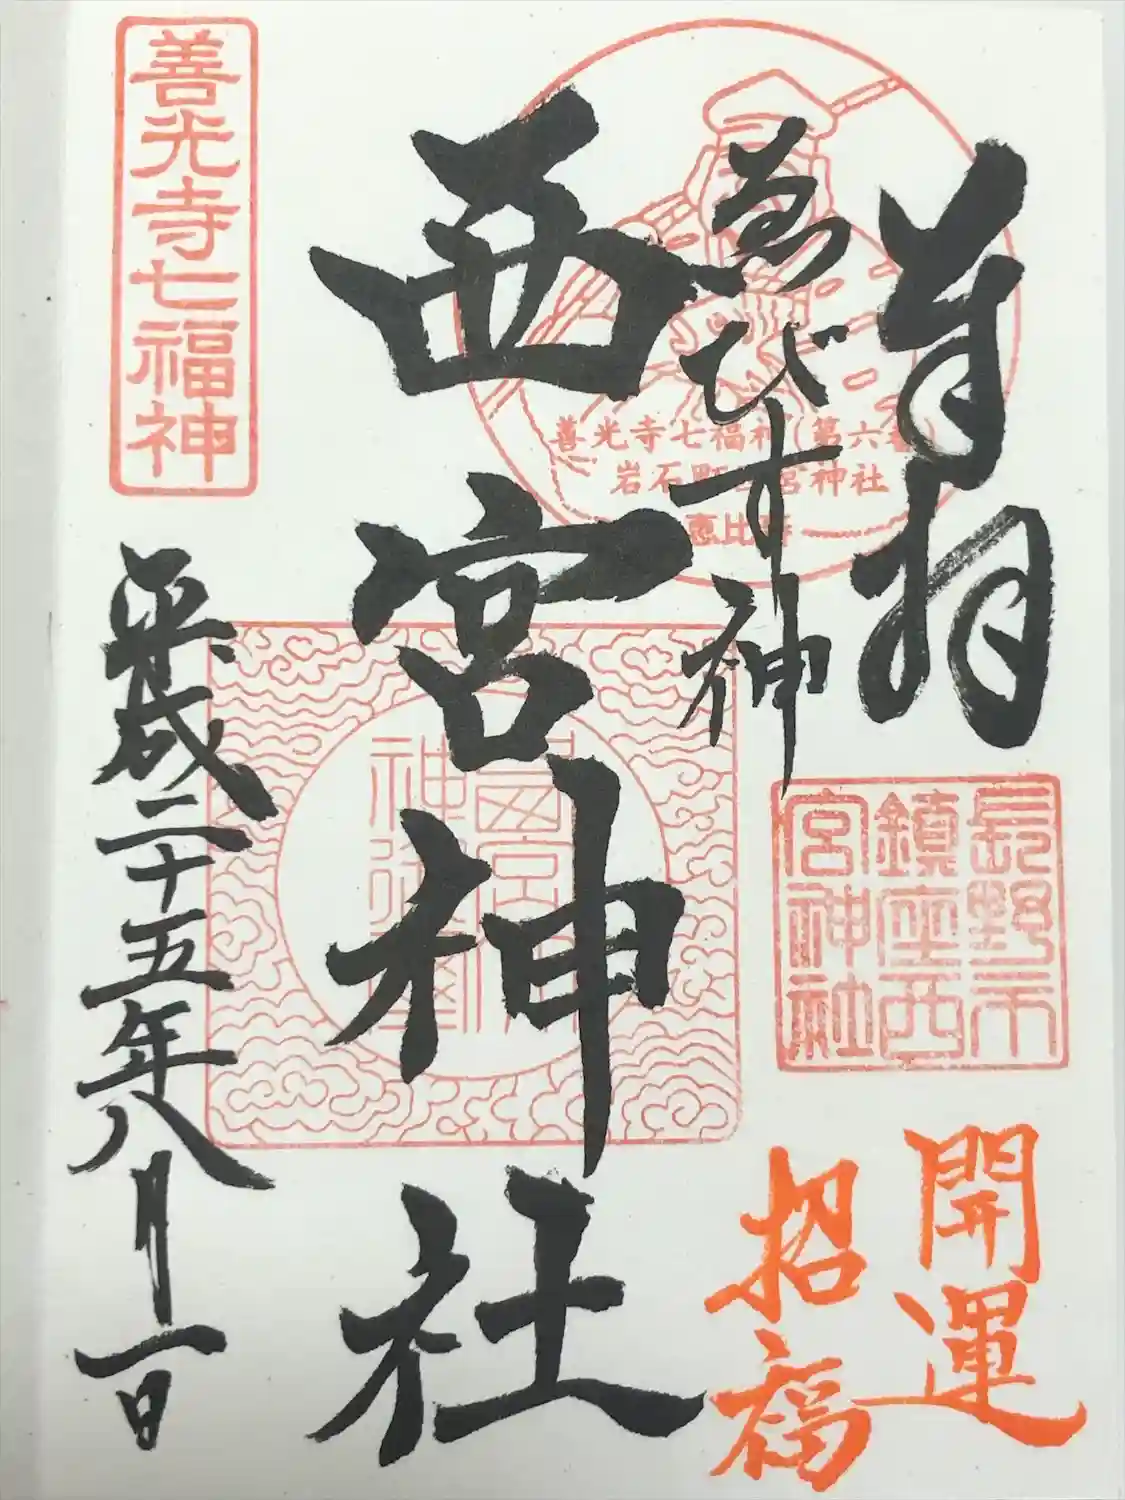 奉拝
ゑびす神
西宮神社
善光寺七福神
平成二十五年八月一日
善光寺七福神(第六番)
岩石町西宮神社
恵比寿
長野市
鎮座西
宮神社
開運
招福